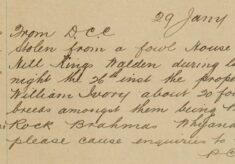 29 Jany
From D.C.C
Stolen from a fowl House
Mill Kings Walden during la
night the 26th inst the prope
William Ivory about 20 fo
breeds amongst them being
Rock Brahmas Whyand
please cause enquiries to
P.C